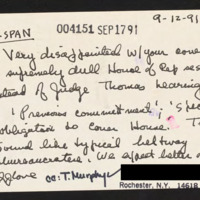 9-12-91
-SPAN
004151 SEP 17 91
Very disappointed w/your cove
supremely dull House of Rep ses
stead of Judge Thomas hearing
'Previous commitments', 'spec
obligation to cover House.' T
sound like typical beltway
bureaucrats. We expect better o
cc: T. Murphy
Rochester, N.Y. 14618